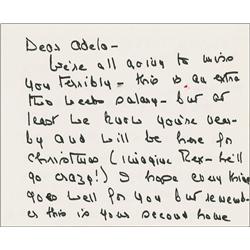 Dear Adela -
We're all going to miss
you terribly - this is an extra
two weeks salary - but at
least we know you're near-
by and will be here for
Christmas (imagine Rex - he'll
go crazy!) I hope everything
goes well for you but rememb-
er this is your second home